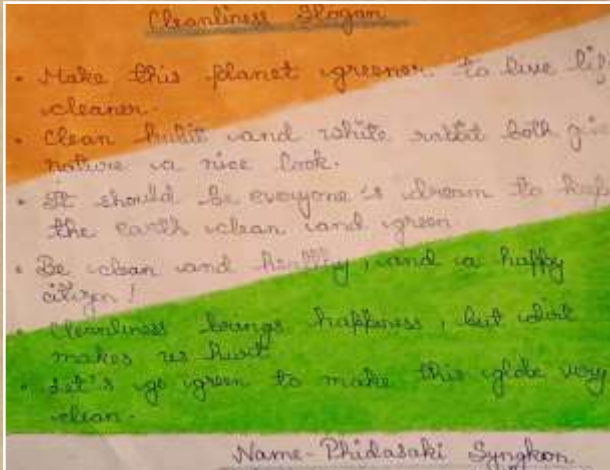 Cleanliness Slogan
• Make this planet greener to live life
cleaner.
• Clean habit and white rabbit both give
nature a nice look.
• It should be everyone's dream to keep
the earth clean and green
• Be clean and healthy, and a happy
citizen!
• Cleanliness brings happiness, but dirt
makes us hurt
• Let's go green to make this globe very
clean.
Name - Phidasaki Syngkon